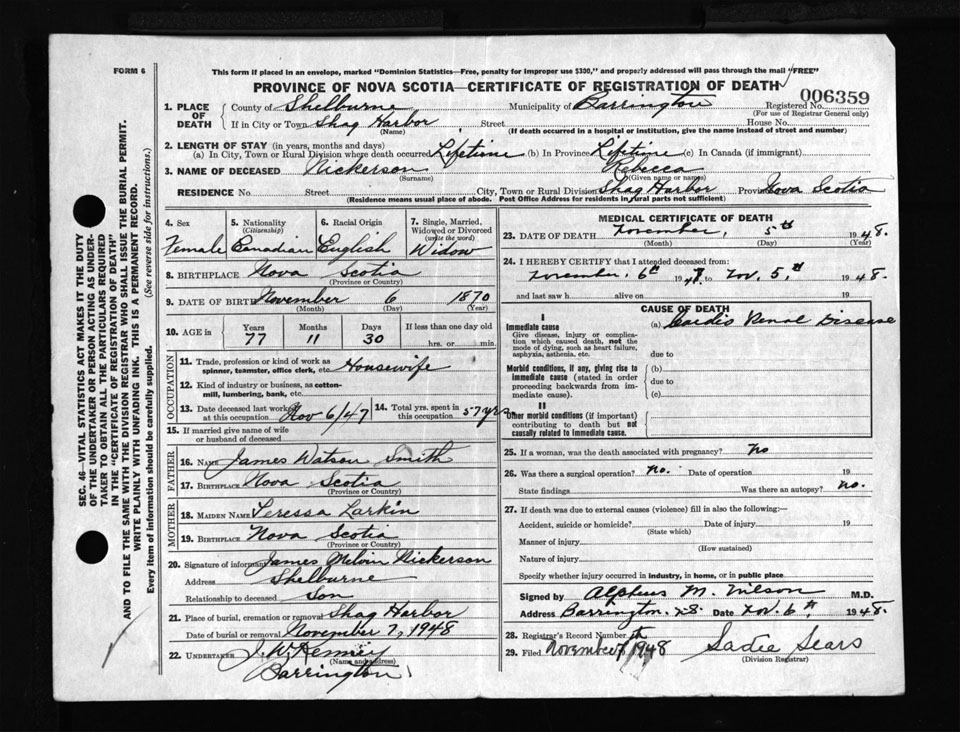 FORM 6
This form if placed in an envelope, marked "Dominion Statistics—Free, penalty for improper use $300," and properly addressed will pass through the mail "FREE"
PROVINCE OF NOVA SCOTIA—CERTIFICATE OF REGISTRATION OF DEATH
006359
1. PLACE OF DEATH
County of Shelburne Municipality of Barrington Registered No.
(For use of Registrar General only)
If in City or Town Shag Harbor Street House No.
(Name) (If death occurred in a hospital or institution, give the name instead of street and number)
2. LENGTH OF STAY (in years, months and days)
(a) In City, Town or Rural Division where death occurred Lifetime (b) In Province Lifetime (c) In Canada (if immigrant)
3. NAME OF DECEASED Nickerson Rebecca
(Surname) (Given name or names)
RESIDENCE No. Street City, Town or Rural Division Shag Harbor Province Nova Scotia
(Residence means usual place of abode. Post Office Address for residents in rural parts not sufficient)
4. Sex
Female
5. Nationality
(Citizenship)
Canadian
6. Racial Origin
English
7. Single, Married, Widowed or Divorced
(write the word)
Widow
8. BIRTHPLACE Nova Scotia
(Province or Country)
9. DATE OF BIRTH November 6 1870
(Month) (Day) (Year)
10. AGE in
Years Months Days If less than one day old
77 11 30 hrs. or min.
OCCUPATION
11. Trade, profession or kind of work as
spinner, teamster, office clerk, etc Housewife
12. Kind of industry or business, as cotton-
mill, lumbering, bank, etc.
13. Date deceased last worked at this occupation Nov 6/47
14. Total yrs. spent in this occupation 57 yrs.
15. If married give name of wife
or husband of deceased
FATHER
16. NAME James Watson Smith
17. BIRTHPLACE Nova Scotia
(Province or Country)
MOTHER
18. MAIDEN NAME Teressa Larkin
19. BIRTHPLACE Nova Scotia
(Province or Country)
20. Signature of informant James Melvin Nickerson
Address Shelburne
Relationship to deceased Son
21. Place of burial, cremation or removal Shag Harbor
Date of burial or removal November 7, 1948
22. UNDERTAKER J. W. Kenney
(Name and address)
Barrington
MEDICAL CERTIFICATE OF DEATH
23. DATE OF DEATH November, 5th 1948.
(Month) (Day) (Year)
24. I HEREBY CERTIFY that I attended deceased from:
November, 6th 1947 to Nov. 5,th 1948.
and last saw h alive on 19
CAUSE OF DEATH
I
Immediate cause
Give disease, injury or complication which caused death, not the mode of dying, such as heart failure, asphyxia, asthenia, etc.
(a) Cardio Renal Disease
due to
Morbid conditions, if any, giving rise to immediate cause (stated in order proceeding backwards from immediate cause).
(b)
due to
(c)
II
Other morbid conditions (if important) contributing to death but not causally related to immediate cause.
25. If a woman, was the death associated with pregnancy? No
26. Was there a surgical operation? No. Date of operation 19
State findings Was there an autopsy? No.
27. If death was due to external causes (violence) fill in also the following:—
Accident, suicide or homicide? Date of injury 19
(State which)
Manner of injury
(How sustained)
Nature of injury
Specify whether injured in industry, in home, or in public place
Signed by Alpheus M. Wilson M.D.
Address Barrington. N.S. Date Nov. 6th, 1948.
28. Registrar's Record Number
29. Filed November 7th 1948 Sadie Sears
(Division Registrar)
SEC. 46—VITAL STATISTICS ACT MAKES IT THE DUTY
OF THE UNDERTAKER OR PERSON ACTING AS UNDER-
TAKER TO OBTAIN ALL THE PARTICULARS REQUIRED
IN THE "CERTIFICATE OF REGISTRATION OF DEATH"
AND TO FILE THE SAME WITH THE DIVISION REGISTRAR WHO SHALL ISSUE THE BURIAL PERMIT.
WRITE PLAINLY WITH UNFADING INK. THIS IS A PERMANENT RECORD.
Every item of information should be carefully supplied. (See reverse side for instructions.)